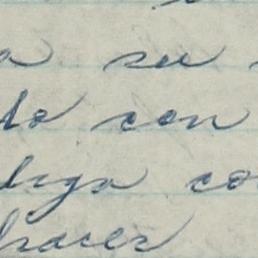 a su
do con
diga co
hacer